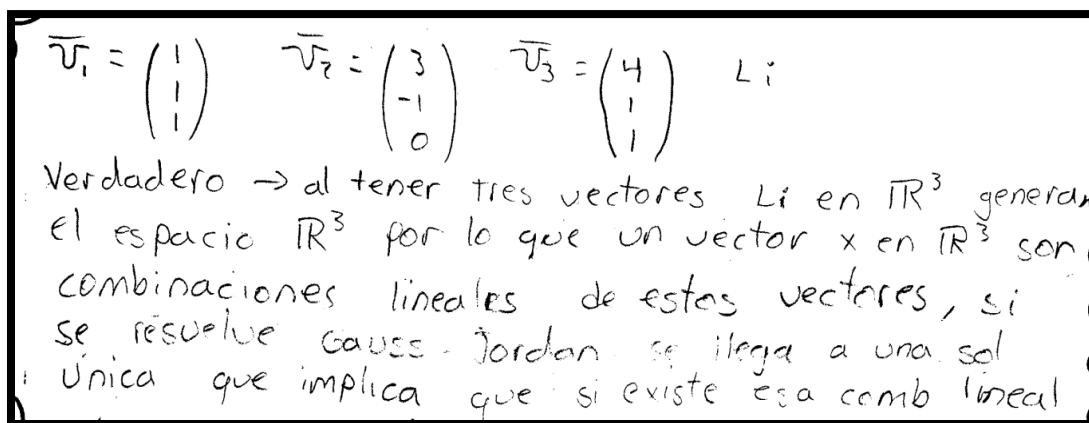 v̅₁ = (1 1 1) v̅₂ = (3 -1 0) v̅₃ = (4 1 1) Li
Verdadero → al tener tres vectores Li en ℝ³ generan
el espacio ℝ³ por lo que un vector x en ℝ³ son
combinaciones lineales de estos vectores, si
se resuelve Gauss-Jordan se llega a una sol
única que implica que si existe esa comb lineal